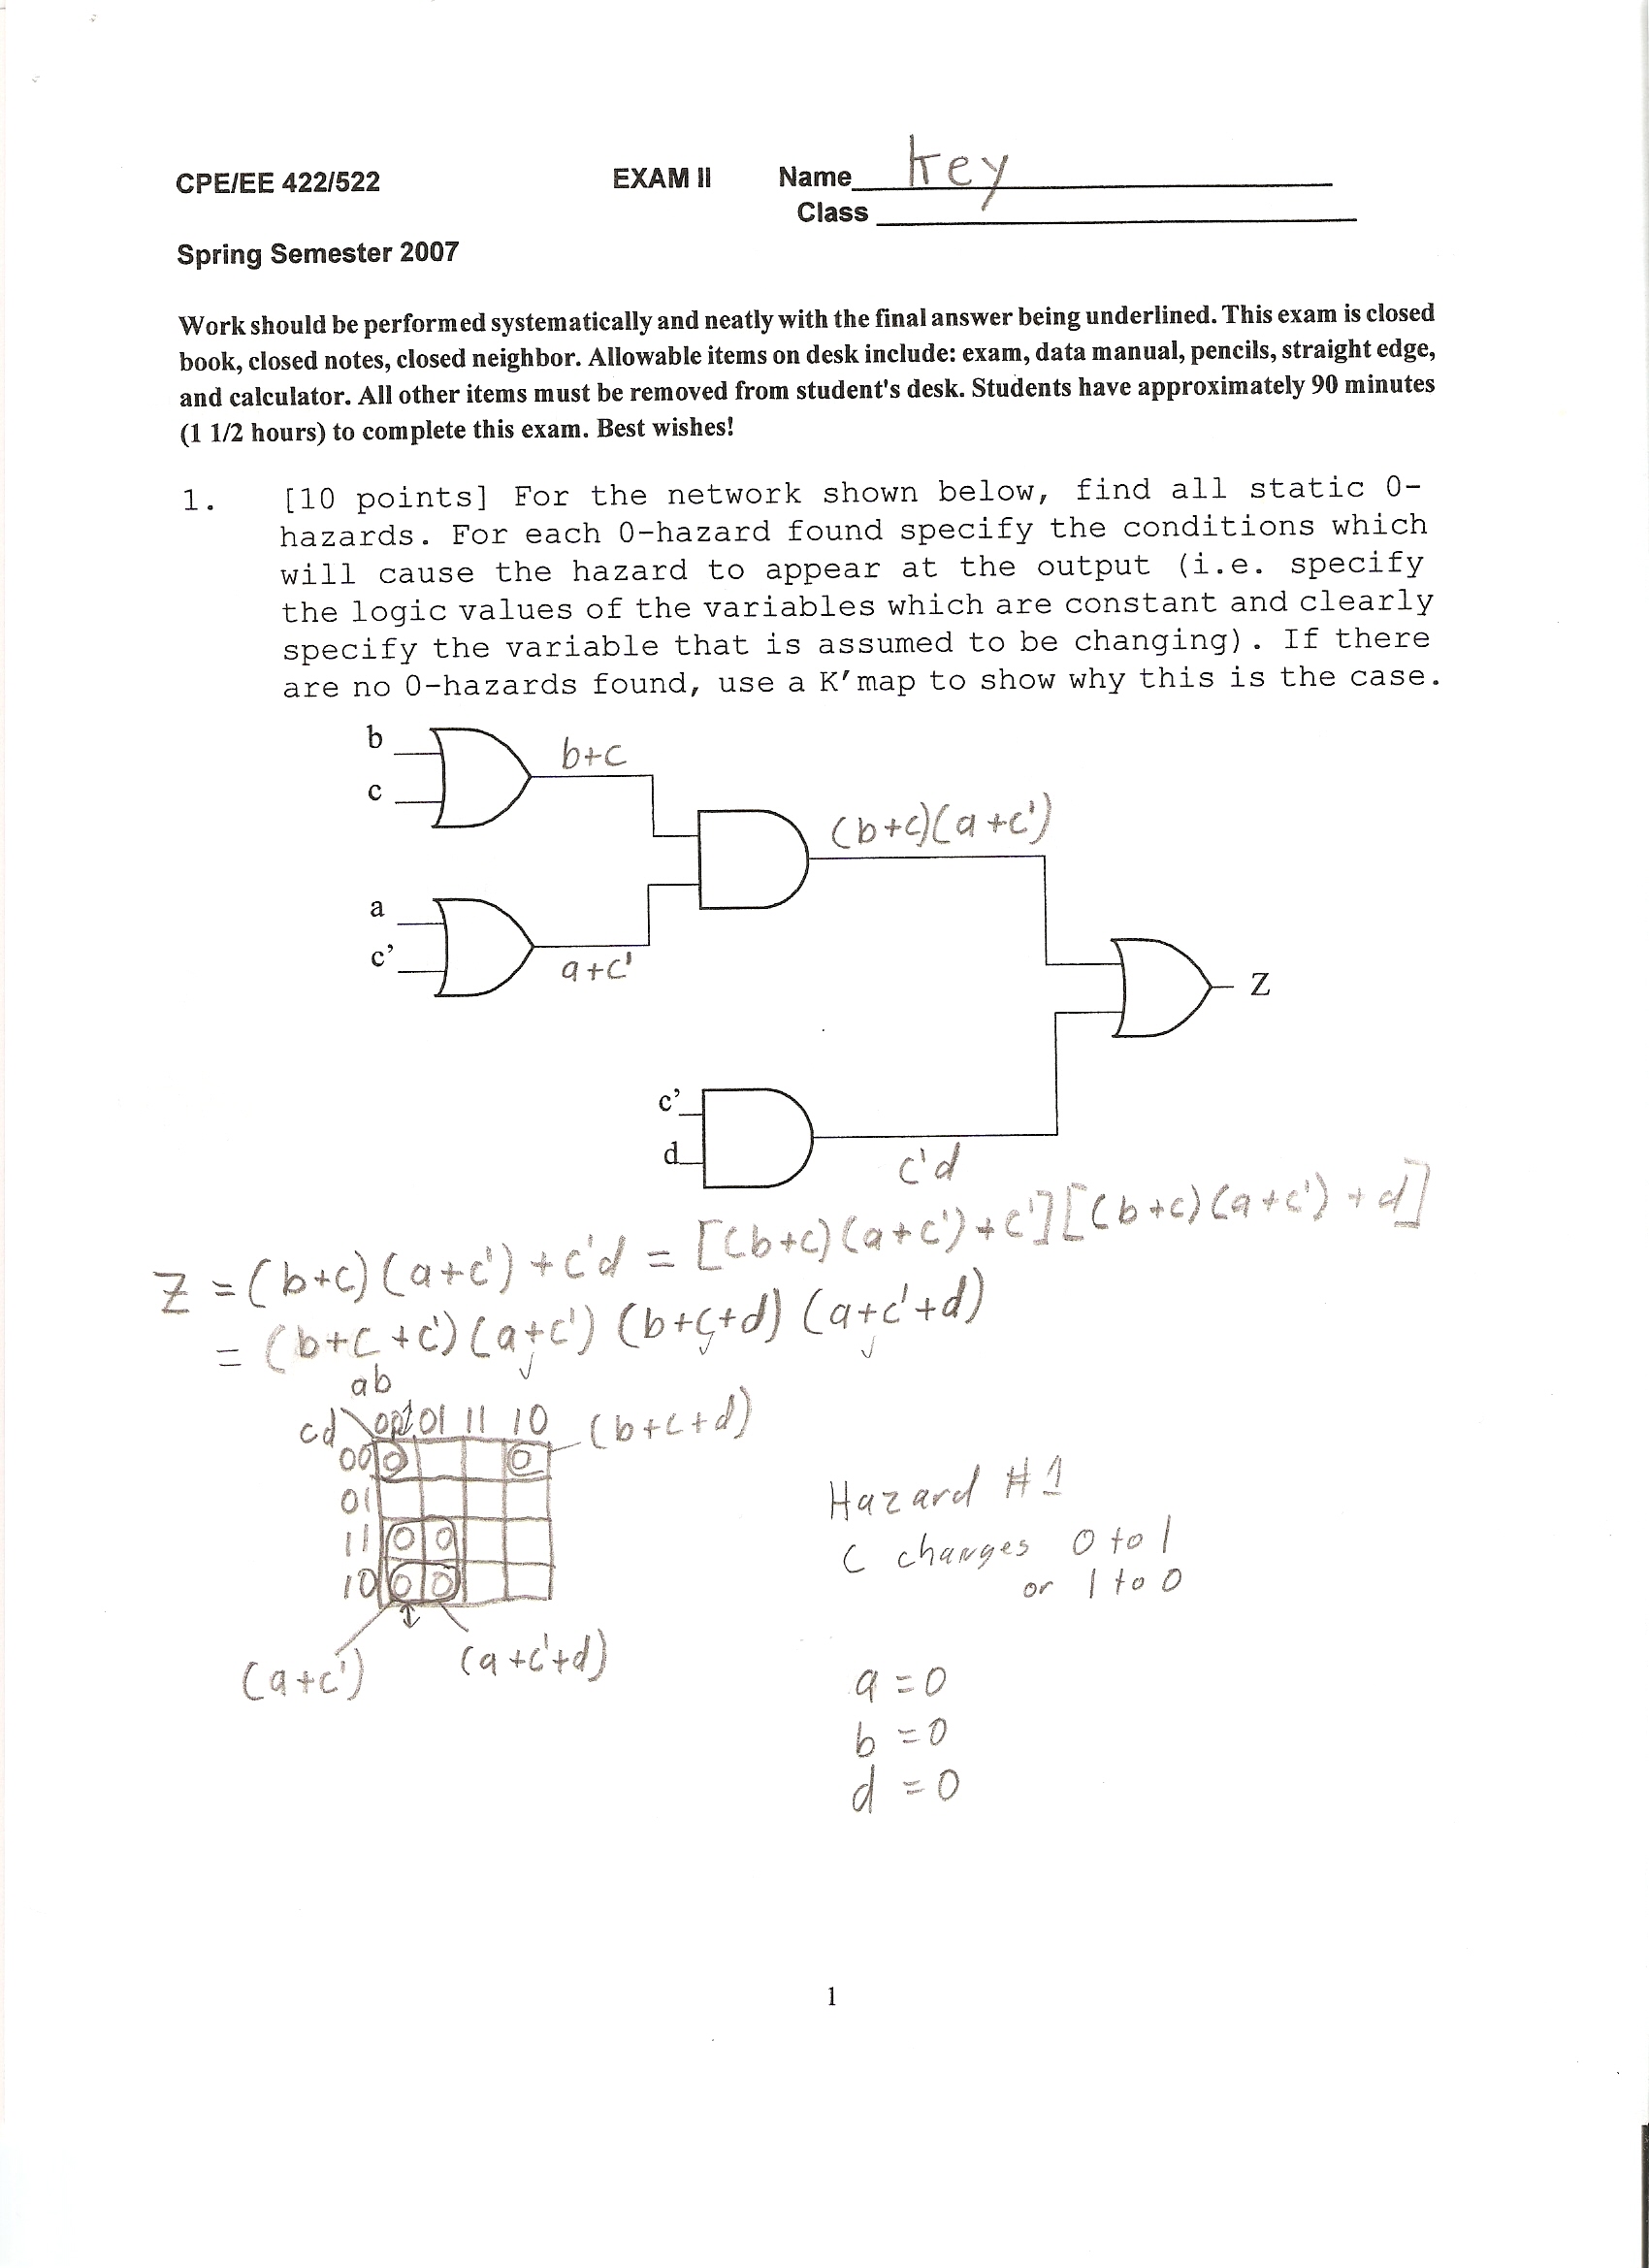 CPE/EE 422/522 EXAM II Name Key
Class
Spring Semester 2007
Work should be performed systematically and neatly with the final answer being underlined. This exam is closed
book, closed notes, closed neighbor. Allowable items on desk include: exam, data manual, pencils, straight edge,
and calculator. All other items must be removed from student's desk. Students have approximately 90 minutes
(1 1/2 hours) to complete this exam. Best wishes!
1. [10 points] For the network shown below, find all static 0-
hazards. For each 0-hazard found specify the conditions which
will cause the hazard to appear at the output (i.e. specify
the logic values of the variables which are constant and clearly
specify the variable that is assumed to be changing). If there
are no 0-hazards found, use a K'map to show why this is the case.
b
b+c
c
(b+c)(a+c')
a
c'
a+c'
Z
c'
d
c'd
Z = (b+c)(a+c') + c'd = [(b+c)(a+c')+c'][(b+c)(a+c')+d]
= (b+c+c')(a+c')(b+c+d)(a+c'+d)
ab
cd 00 01 11 10 (b+c+d)
00 0 0
01
11 0 0
10 0 0
(a+c') (a+c'+d)
Hazard #1
C changes 0 to 1
or 1 to 0
a = 0
b = 0
d = 0
1